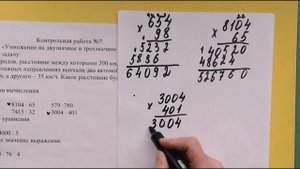 Контрольная работа №7
«Умножение на двузначное и трехзначное
задачу:
родов, расстояние между которыми 200 км,
ложных направлениях выехали два автомоб
а другого – 35 км/ч. Какое расстояние бу
♥8104 · 65 579 · 780
7415 · 32 ♥3004 · 401
уравнения
000 : 5
е значение выражения.
· 76 : 4
× 654
98
5232
5886
64092
× 8104
65
40520
48624
526760
× 3004
401
3004